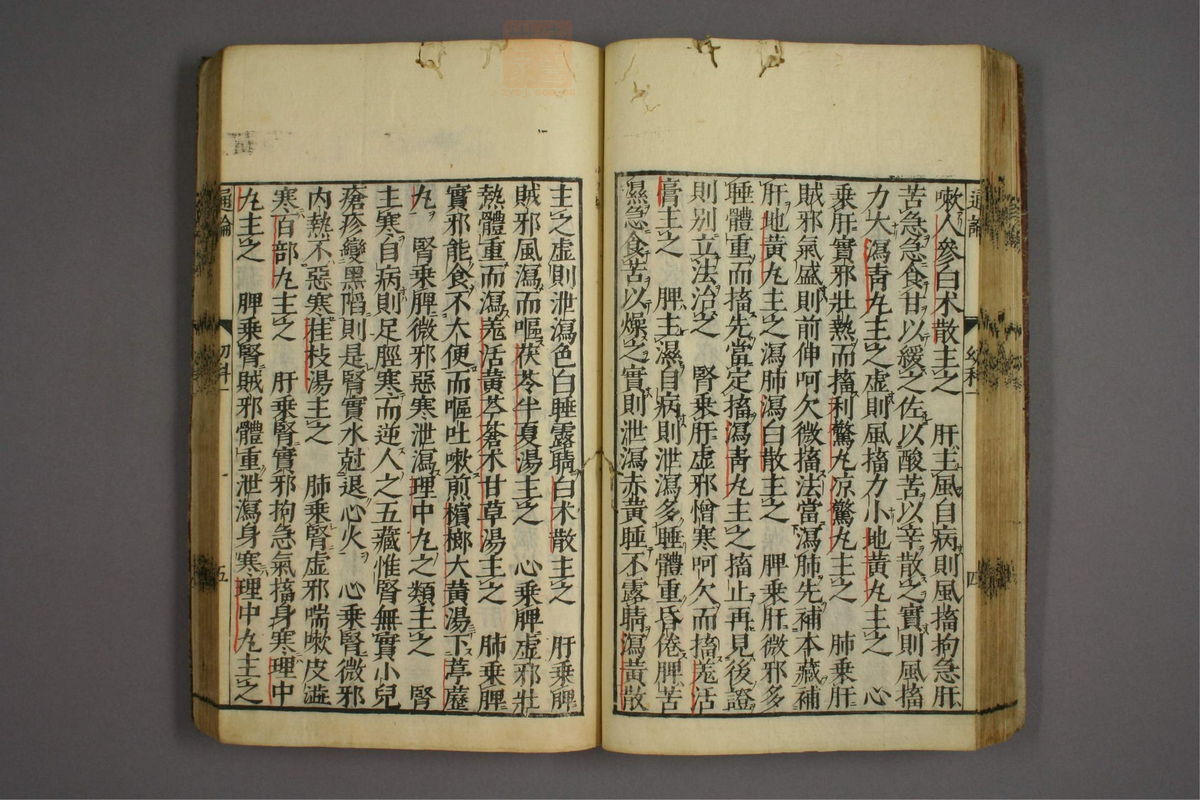 嗽人參白朮散主之　肝主風自病則風搐拘急肝
苦急急食甘以緩之佐以酸苦以辛散之實則風搐
力大瀉靑丸主之虛則風搐力小地黃丸主之　心
乘肝實邪壯熱而搐利驚丸凉驚丸主之　肺乘肝
賊邪氣盛則前伸呵欠微搐法當瀉肺先補本藏補
肝地黃丸主之瀉肺瀉白散主之　脾乘肝微邪多
睡體重而搐先當定搐瀉靑丸主之搐止再見後證
則別立法治之　腎乘肝虛邪憎寒呵欠而搐羗活
膏主之　脾主濕自病則泄瀉多睡體重昏倦脾苦
濕急食苦以燥之實則泄瀉赤黃睡不露睛瀉黃散
主之虛則泄瀉色白睡露睛白朮散主之　肝乘脾
賊邪風瀉而嘔茯苓半夏湯主之　心乘脾虛邪壯
熱體重而瀉羗活黃芩蒼朮甘草湯主之　肺乘脾
實邪能食不大便而嘔吐嗽煎檳榔大黃湯下葶藶
丸　腎乘脾微邪惡寒泄瀉理中丸之類主之　腎
主寒自病則足脛寒而逆人之五藏惟腎無實小兒
瘡疹變黑陷則是腎實水尅退心火　心乘腎微邪
內熱不惡寒桂枝湯主之　肺乘腎虛邪喘嗽皮澁
寒百部丸主之　肝乘腎實邪拘急氣搐身寒理中
丸主之　脾乘腎賊邪體重泄瀉身寒理中丸主之
通論　幼科一　四
通論　幼科一　五